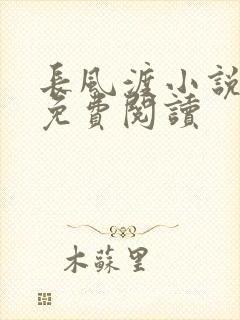 長風渡小說
免費閱讀
木蘇里